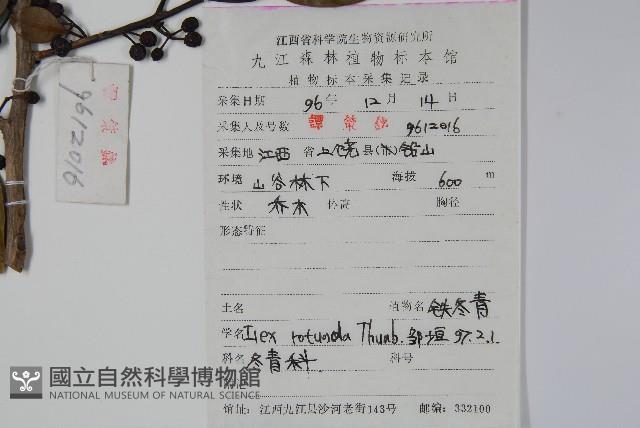 江西省科学院生物资源研究所
九江森林植物标本馆
植物标本采集记录
采集日期 96年 12月 14日
采集人及号数 譚策銘 9612016
采集地 江西省上饶县(林)铅山
环境 山谷林下 海拔 600 m
性状 乔木 体高 胸径
形态特征
土名 植物名 铁冬青
学名 Ilex rotunda Thunb. 邹垣 97.2.1.
科名 冬青科 科号
附记
馆址：江西九江县沙河老街143号 邮编：332100
9612016
譚策銘
國立自然科學博物館
NATIONAL MUSEUM OF NATURAL SCIENCE